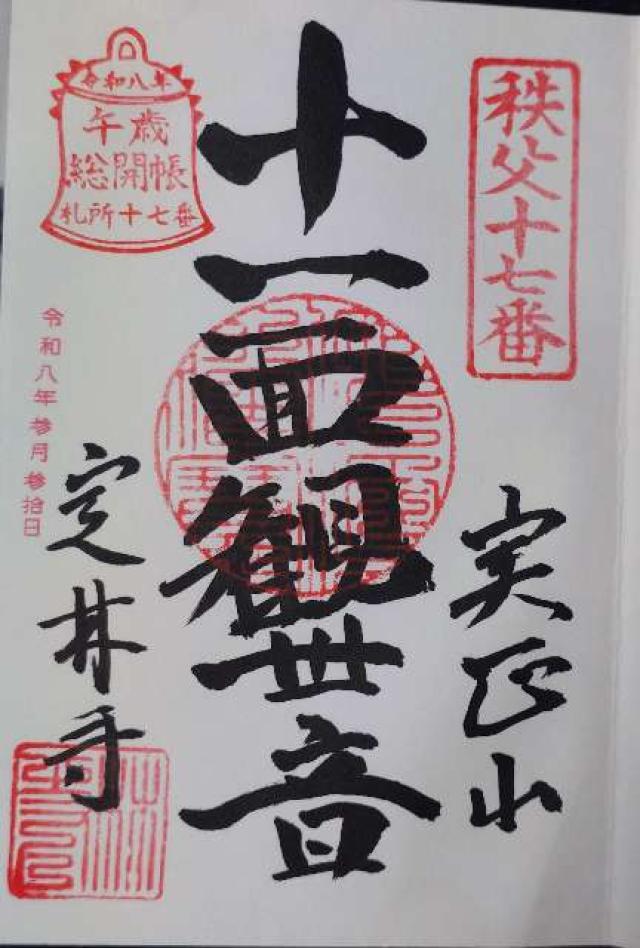 秩父十七番
実正山
十一面観世音
令和八年
午歳
総開帳
札所十七番
令和八年参月参拾日
定林寺